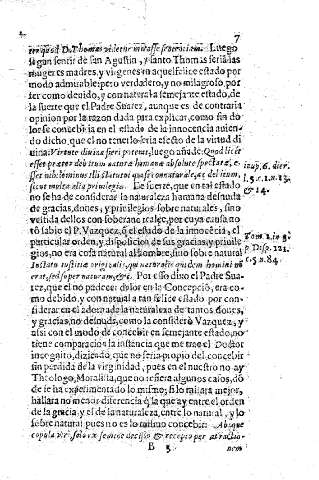 7
ter quod D. Thomas videtur miraße
Luego
si gun sentir de san Agustin, y santo Thomas seria las
mugeres madres, y virgenes en aquel felice estado por
modo admirable: pero verdadero, y no milagroso, por
ser como devido, y connatural a semejante estado, de
la suerte que el Padre Suarez, aunque es de contraria
opinion por la razon dada para explicar, como sin do
lor se concebiria en el estado de la innocencia auien-
do dicho, que el no tenerlo seria efecto de la virtud di
uina: Virtute diuina fieri poterat, luego añade: Quod licèt
esset præter debitum naturæ humanæ absolutè spectatæ, es-
set nihilominus illi statui quasi connaturale, ac debitum,
sicut multa alia priuilegia. De suerte, que en tal estado
no se ha de considerar la naturaleza humana desnuda
de gracias, dones, y priuilegios sobre naturales, sino
vestida dellos con soberano realçe, por cuya causa no
tò sabio el P. Vazquez, q̃ el estado de la innocẽcia, el
particular orden, y disposicion de sus gracias, y priuile
gios, no era cosa natural al hombre, sino sobre natural
In statu iustitiæ originalis, qui naturalis quidem homini nõ
erat, sed super naturam, &c. Por esso dixo el Padre Sua-
rez, que el no padecer dolor en la Concepcion, era co-
mo debido, y connatural a tan felice estado por con-
siderar en el adornada la naturaleza de tantos dones,
y gracias, no desnuda, como la considerò Vazquez, y
assi con el modo de concebir en semejante estado, no
tiene comparacion la instancia que me trae el Doctor
incognito, diziendo, que no seria propio del concebir
sin perdida de la virginidad, pues en el nuestro no ay
Theologo, Moralista, que no refiera algunos casos, dõ
de se ha experimentado lo mismo; si lo mirara mejor,
hallara no menor diferencia q̃ la que ay entre el orden
de la gracia, y es de la naturaleza, entre lo natural, y lo
sobre natural pues no es lo mismo concebir: Absque
copula viri, sola ex semine deciso & recepto per attractio-
B 3
nem
in diƈt. 6. disp.
l. 5. c. 1. n. 13.
& 14.
Tom. 2. in 3.
p. Disp. 121.
c. 3. n. 84.